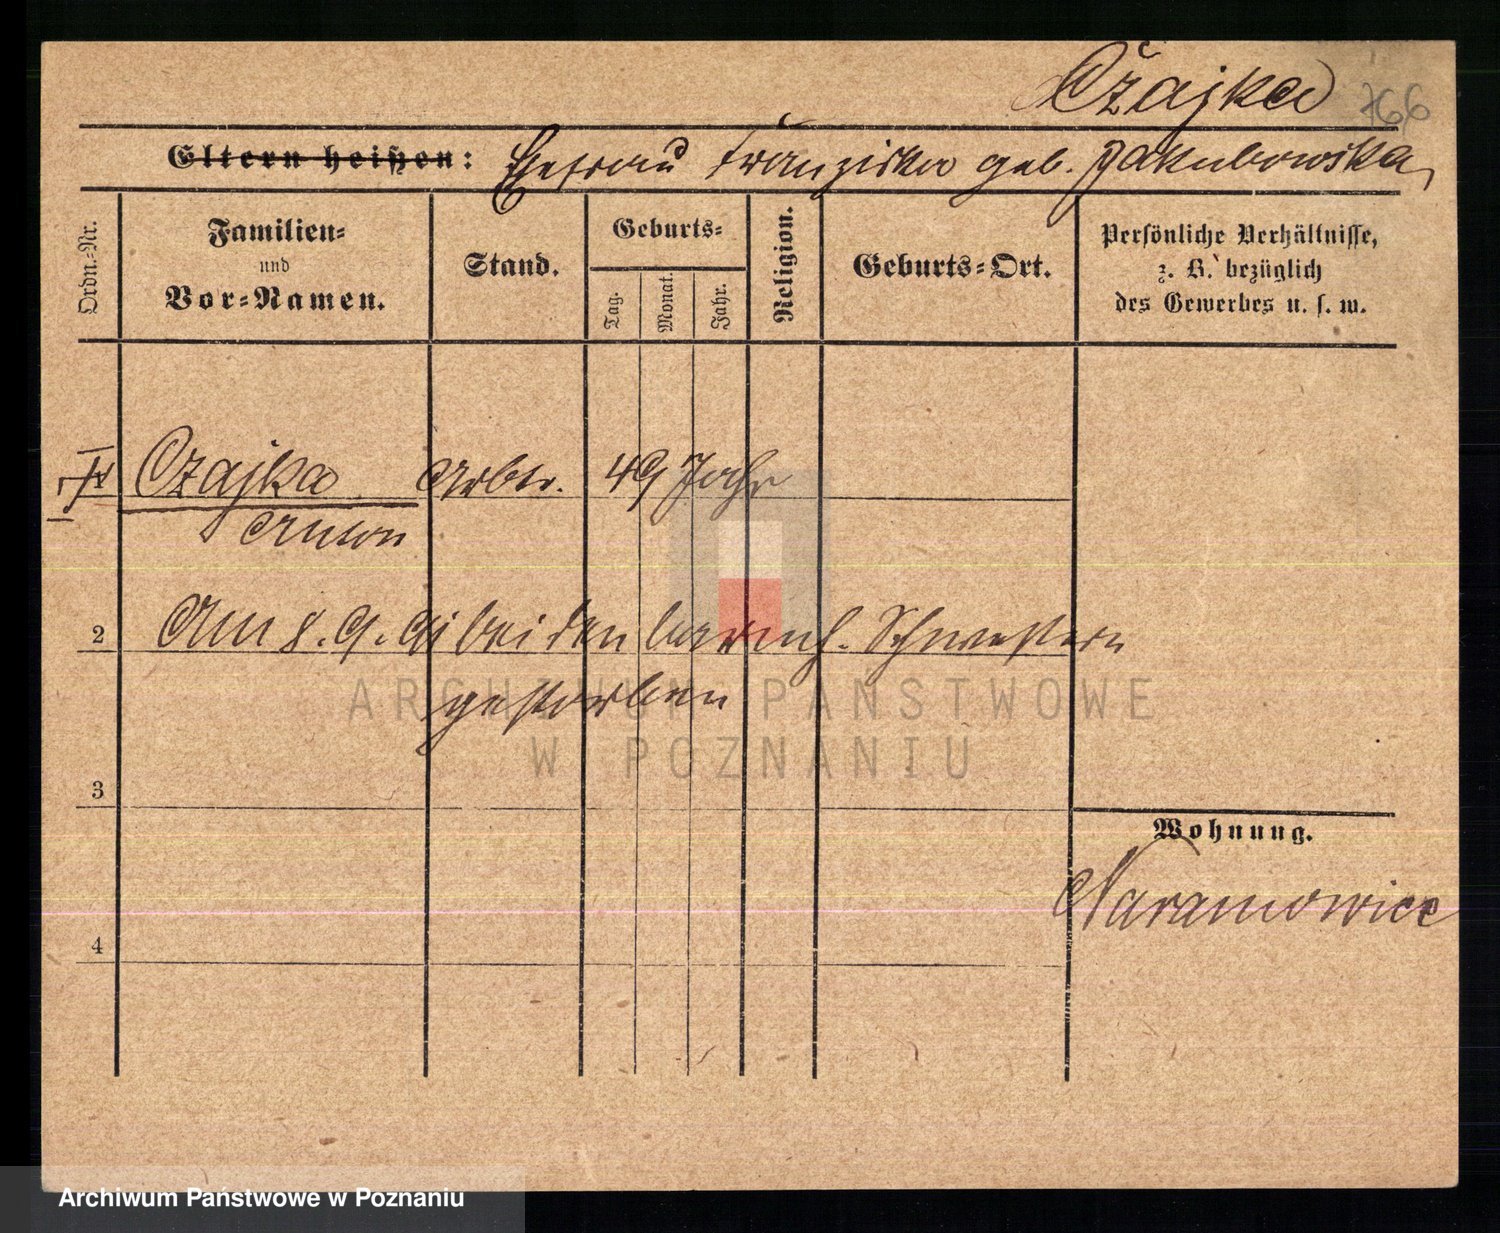 Czajka 766
Eltern heißen: Ehefrau Franziska geb. Jakubowska,
Ordn.-Nr.
Familien-
und
Vor-Namen.
Stand.
Geburts-
Tag.
Monat.
Jahr.
Religion.
Geburts-Ort.
Persönliche Verhältnisse,
z. B. bezüglich
des Gewerbes u. s. w.
Czajka Arbtr. 49 Jahr
Anton
2 Am 8. 9. 91 bei den barmh. Schwestern
gestorben
ARCHIWUM PAŃSTWOWE
W POZNANIU
3
Wohnung.
Naramowice
4
Archiwum Państwowe w Poznaniu